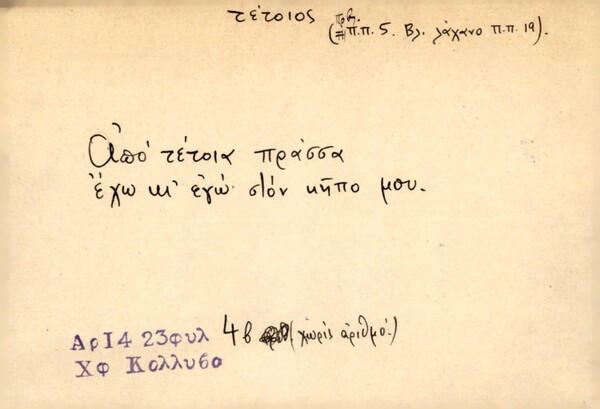 τέτοιος πρβ.
(Π.Π. 5. Βλ. λάχανο Π.Π. 19).
Ἀπό τέτοια πράσσα
ἔχω κι' ἐγώ στόν κῆπο μου.
Αρ14 23φυλ 4β (χωρίς ἀριθμό.)
Χφ Κολλυβα